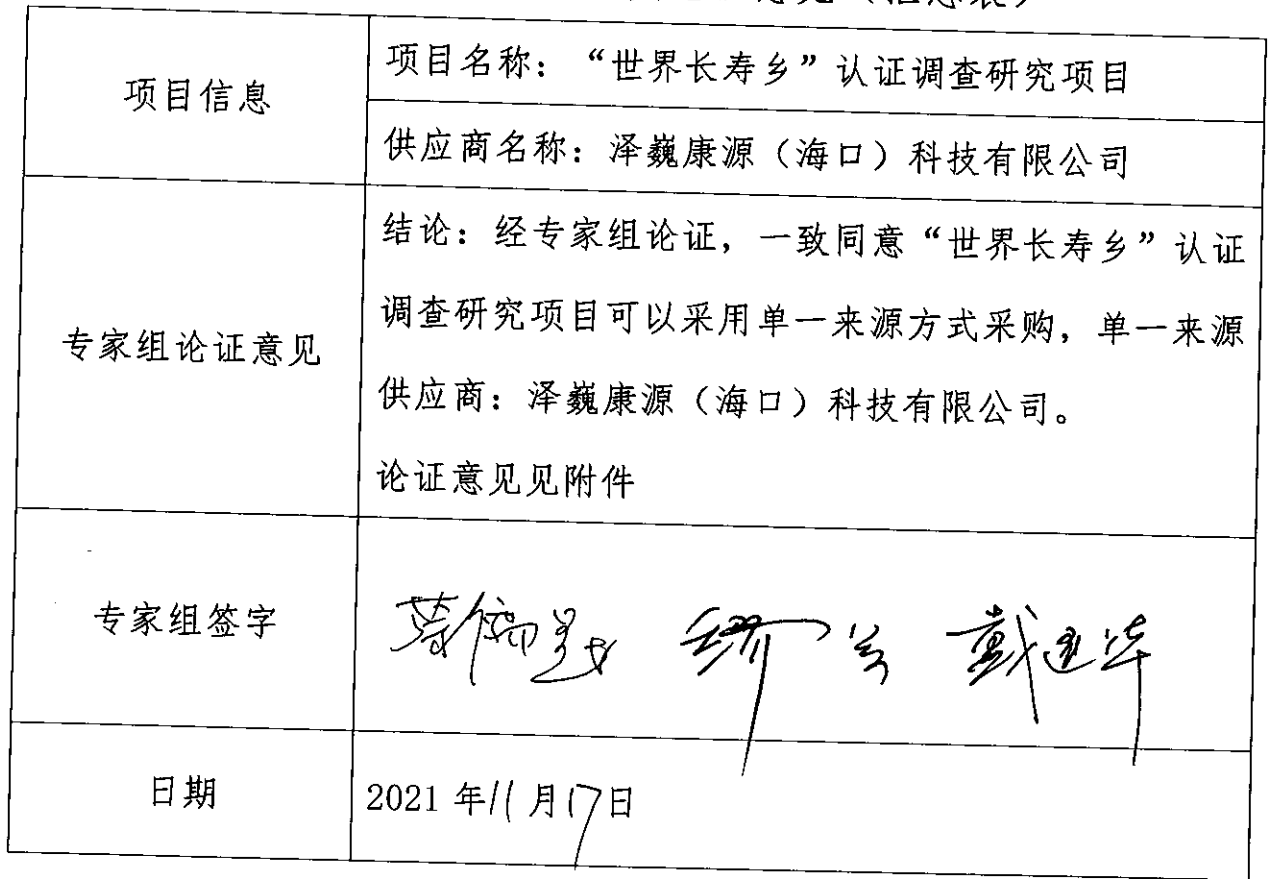 意见（汇总表）
项目信息
项目名称：“世界长寿乡”认证调查研究项目
供应商名称：泽巍康源（海口）科技有限公司
专家组论证意见
结论：经专家组论证，一致同意“世界长寿乡”认证
调查研究项目可以采用单一来源方式采购，单一来源
供应商：泽巍康源（海口）科技有限公司。
论证意见见附件
专家组签字
戴建华
日期
2021 年11月17日